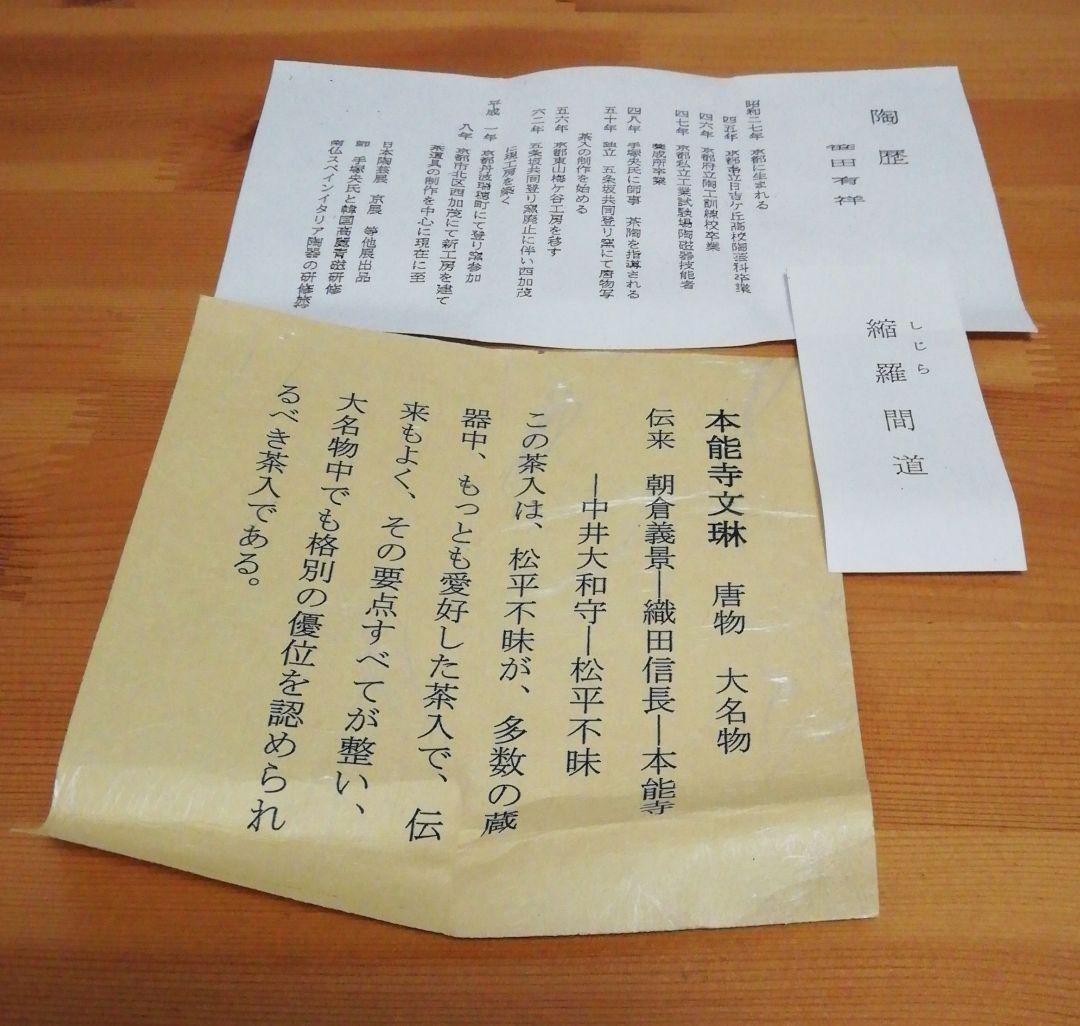 陶歴
笹田有祥
昭和二七年 京都に生まれる
四五年 京都市立日吉ケ丘高校陶芸科卒業
四六年 京都府立陶工訓練校卒業
四七年 京都私立工業試験場陶磁器技能者
養成所卒業
四八年 手塚央氏に師事 茶陶を指導される
五十年 独立 五条坂共同登り窯にて唐物写
茶入の制作を始める
五六年 京都東山梅ケ谷工房を移す
六二年 五条坂共同登り窯廃止に伴い西加茂
に現工房を築く
平成 一年 京都丹波瑞穂町にて登り窯参加
八年 京都市北区西加茂にて新工房を建て
茶道具の制作を中心に現在に至
日本陶芸展 京展 等他展出品
師 手塚央氏と韓国高麗青磁研修
南仏スペインイタリア陶器の研修旅
しじら
縮羅間道
本能寺文琳 唐物 大名物
伝来 朝倉義景―織田信長―本能寺
―中井大和守―松平不昧
この茶入は、松平不昧が、多数の蔵
器中、もっとも愛好した茶入で、伝
来もよく、その要点すべてが整い、
大名物中でも格別の優位を認められ
るべき茶入である。